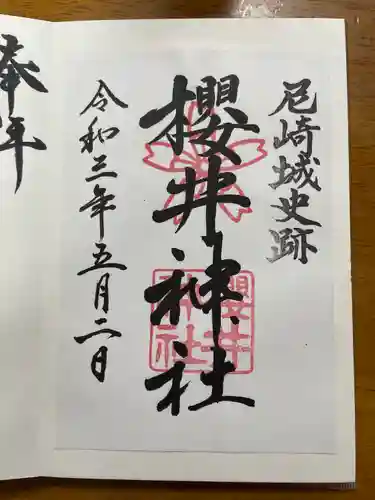 尼崎城史跡
櫻井神社
櫻井
神社
令和三年五月二日
奉拝